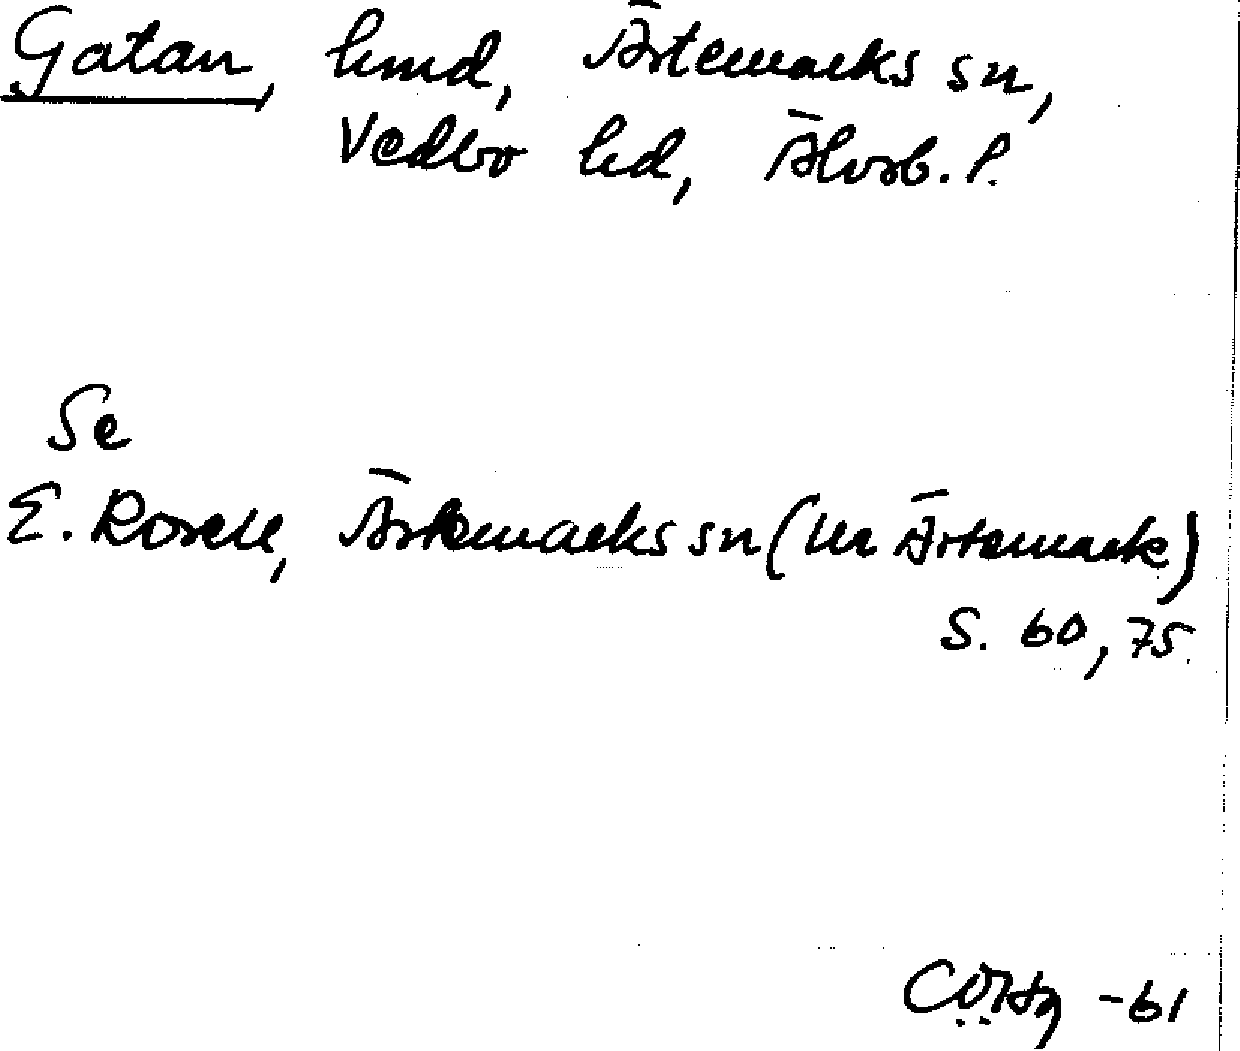 Gatan, hmd, Ärtemarks sn,
Vedbo hd, Älvsb. l.
Se
E. Rosell, Ärtemarks sn (ur Ärtemark)
S. 60, 75.
-61